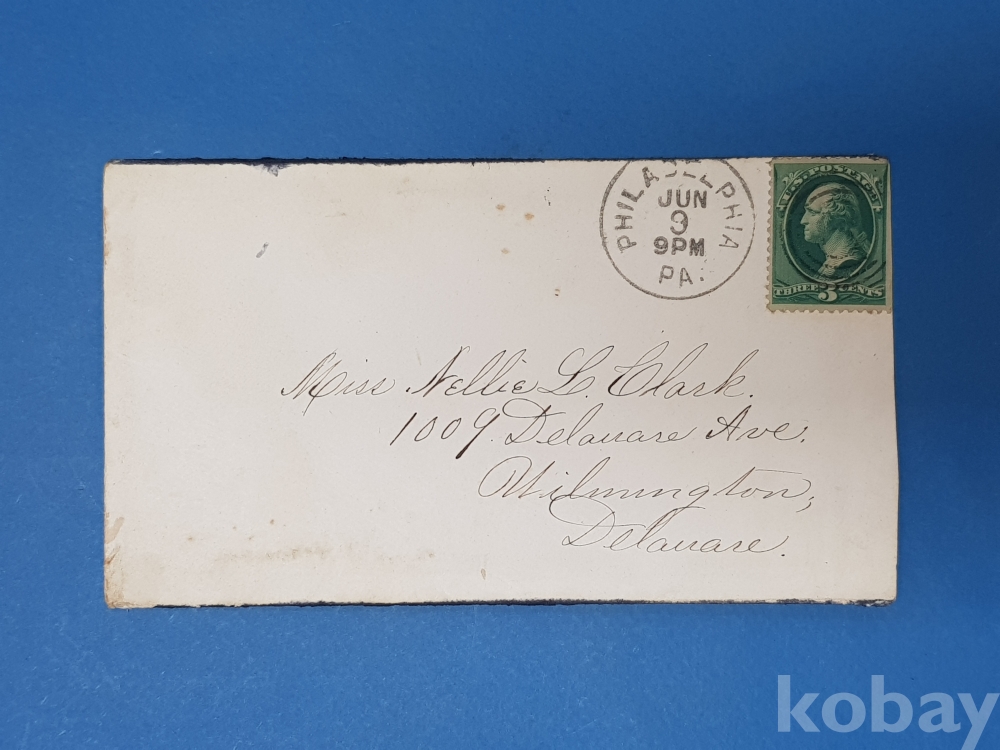 PHILADELPHIA
JUN
9
9PM
PA.
U.S. POSTAGE
THREE 3 CENTS
Miss Nellie L. Clark.
1009 Delaware Ave.
Wilmington,
Delaware.
kobay